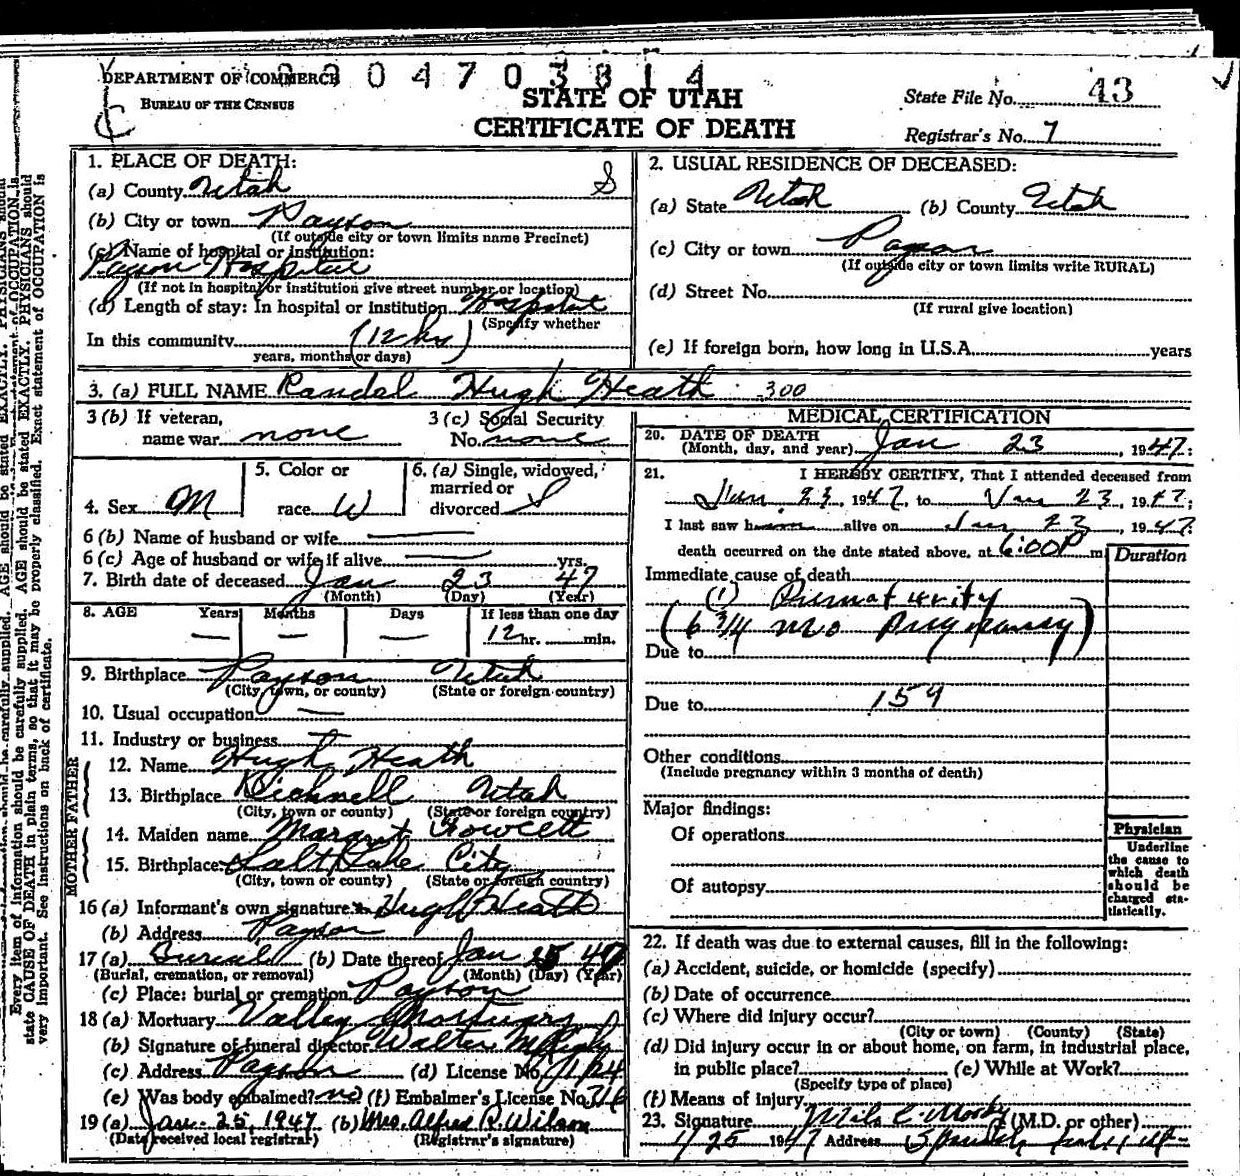 DEPARTMENT OF COMMERCE
BUREAU OF THE CENSUS
04703814
STATE OF UTAH
CERTIFICATE OF DEATH
State File No. 43
Registrar's No. 7
1. PLACE OF DEATH:
(a) County Utah S
(b) City or town Payson
(If outside city or town limits name Precinct)
(c) Name of hospital or institution:
Payson Hospital
(If not in hospital or institution give street number or location)
(d) Length of stay: In hospital or institution Hospital
(Specify whether
In this community (12 hrs)
years, months or days)
2. USUAL RESIDENCE OF DECEASED:
(a) State Utah (b) County Utah
(c) City or town Payson
(If outside city or town limits write RURAL)
(d) Street No.
(If rural give location)
(e) If foreign born, how long in U.S.A. years
3. (a) FULL NAME Randal Hugh Heath 300
3 (b) If veteran,
name war none
3 (c) Social Security
No. none
4. Sex M
5. Color or
race W
6. (a) Single, widowed,
married or
divorced S
6 (b) Name of husband or wife
6 (c) Age of husband or wife if alive yrs.
7. Birth date of deceased Jan 23 47
(Month) (Day) (Year)
8. AGE Years Months Days If less than one day
12 hr. min.
9. Birthplace Payson Utah
(City, town, or county) (State or foreign country)
10. Usual occupation
11. Industry or business
FATHER
12. Name Hugh Heath
13. Birthplace Bicknell Utah
(City, town or county) (State or foreign country)
MOTHER
14. Maiden name Margaret Fowcett
15. Birthplace Salt Lake City
(City, town or county) (State or foreign country)
16 (a) Informant's own signature x Hugh Heath
(b) Address Payson
17 (a) Burial (b) Date thereof Jan 25 47
(Burial, cremation, or removal) (Month) (Day) (Year)
(c) Place: burial or cremation Payson
18 (a) Mortuary Valley Mortuary
(b) Signature of funeral director Walter
(c) Address Payson (d) License No.
(e) Was body embalmed? no (f) Embalmer's License No.
19 (a) Jan. 25, 1947 (b) Mrs. Alfred R. Wilson
(Date received local registrar) (Registrar's signature)
MEDICAL CERTIFICATION
20. DATE OF DEATH
(Month, day, and year) Jan 23, 1947;
21. I HEREBY CERTIFY, That I attended deceased from
Jan 23, 1947, to Jan 23, 1947;
I last saw him alive on Jan 23, 1947
death occurred on the date stated above, at 6:00 P m.
Duration
Immediate cause of death
(1) Prematurity
(6 3/4 mo pregnancy)
Due to
Due to 159
Other conditions
(Include pregnancy within 3 months of death)
Major findings:
Of operations
Of autopsy
Physician
Underline
the cause to
which death
should be
charged sta-
tistically.
22. If death was due to external causes, fill in the following:
(a) Accident, suicide, or homicide (specify)
(b) Date of occurrence
(c) Where did injury occur?
(City or town) (County) (State)
(d) Did injury occur in or about home, on farm, in industrial place,
in public place? (e) While at Work?
(Specify type of place)
(f) Means of injury
23. Signature Milo C Moody (M.D. or other)
1/25 1947 Address
Every item of information should be carefully supplied. AGE should be stated EXACTLY. PHYSICIANS should
state CAUSE OF DEATH in plain terms, so that it may be properly classified. Exact statement of OCCUPATION is
very important. See instructions on back of certificate.